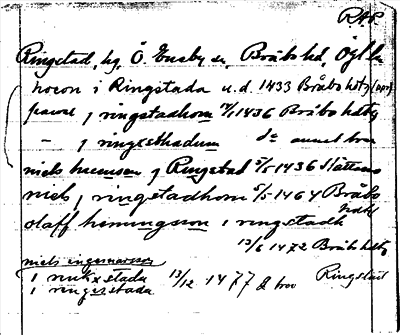 RAP.
Ringstad, hg. Ö. Eneby sn, Bråbo hd, Ögl. län
horon i Ringstada u.d. 1433 Bråbo hdtg (or)
pawal j ringstadhom 1436 Bråbo hdtg
— j ringesthadum d:o annat brev
niels j Ringstad 1436 slättens
niels j ringstadhom 5/5 1464 Bråbo hdtg
olaff henningsson i ringstadh
13/6 1472 Bråb. hdtg
niels ingemarsson
i rinkxstada 13/12 1477 2 brev Ringstad
i ringesstada